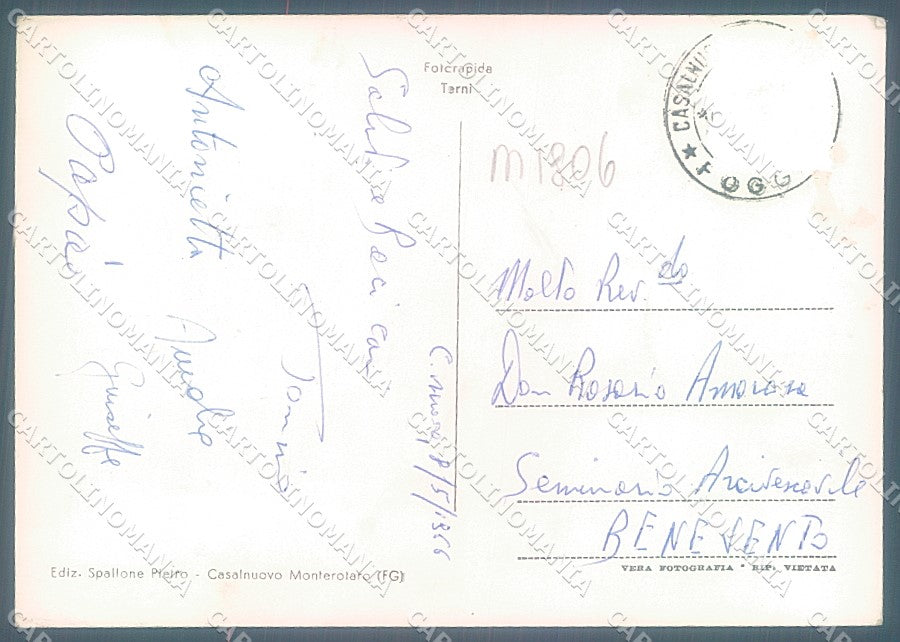 Fotorapida
Terni
CASALNU
FOGG
M1806
Saluti e Baci cari
C.nuovo, 8/5/1966
Tonino
Antonietta
Amalia
Papà
Giuseppe
Molto Rev.do
Don Rosario Amoroso
Seminario Arcivescovile
BENEVENTO
Ediz. Spallone Pietro - Casalnuovo Monterotaro (FG)
VERA FOTOGRAFIA - RIP. VIETATA
CARTOLINOMANIA